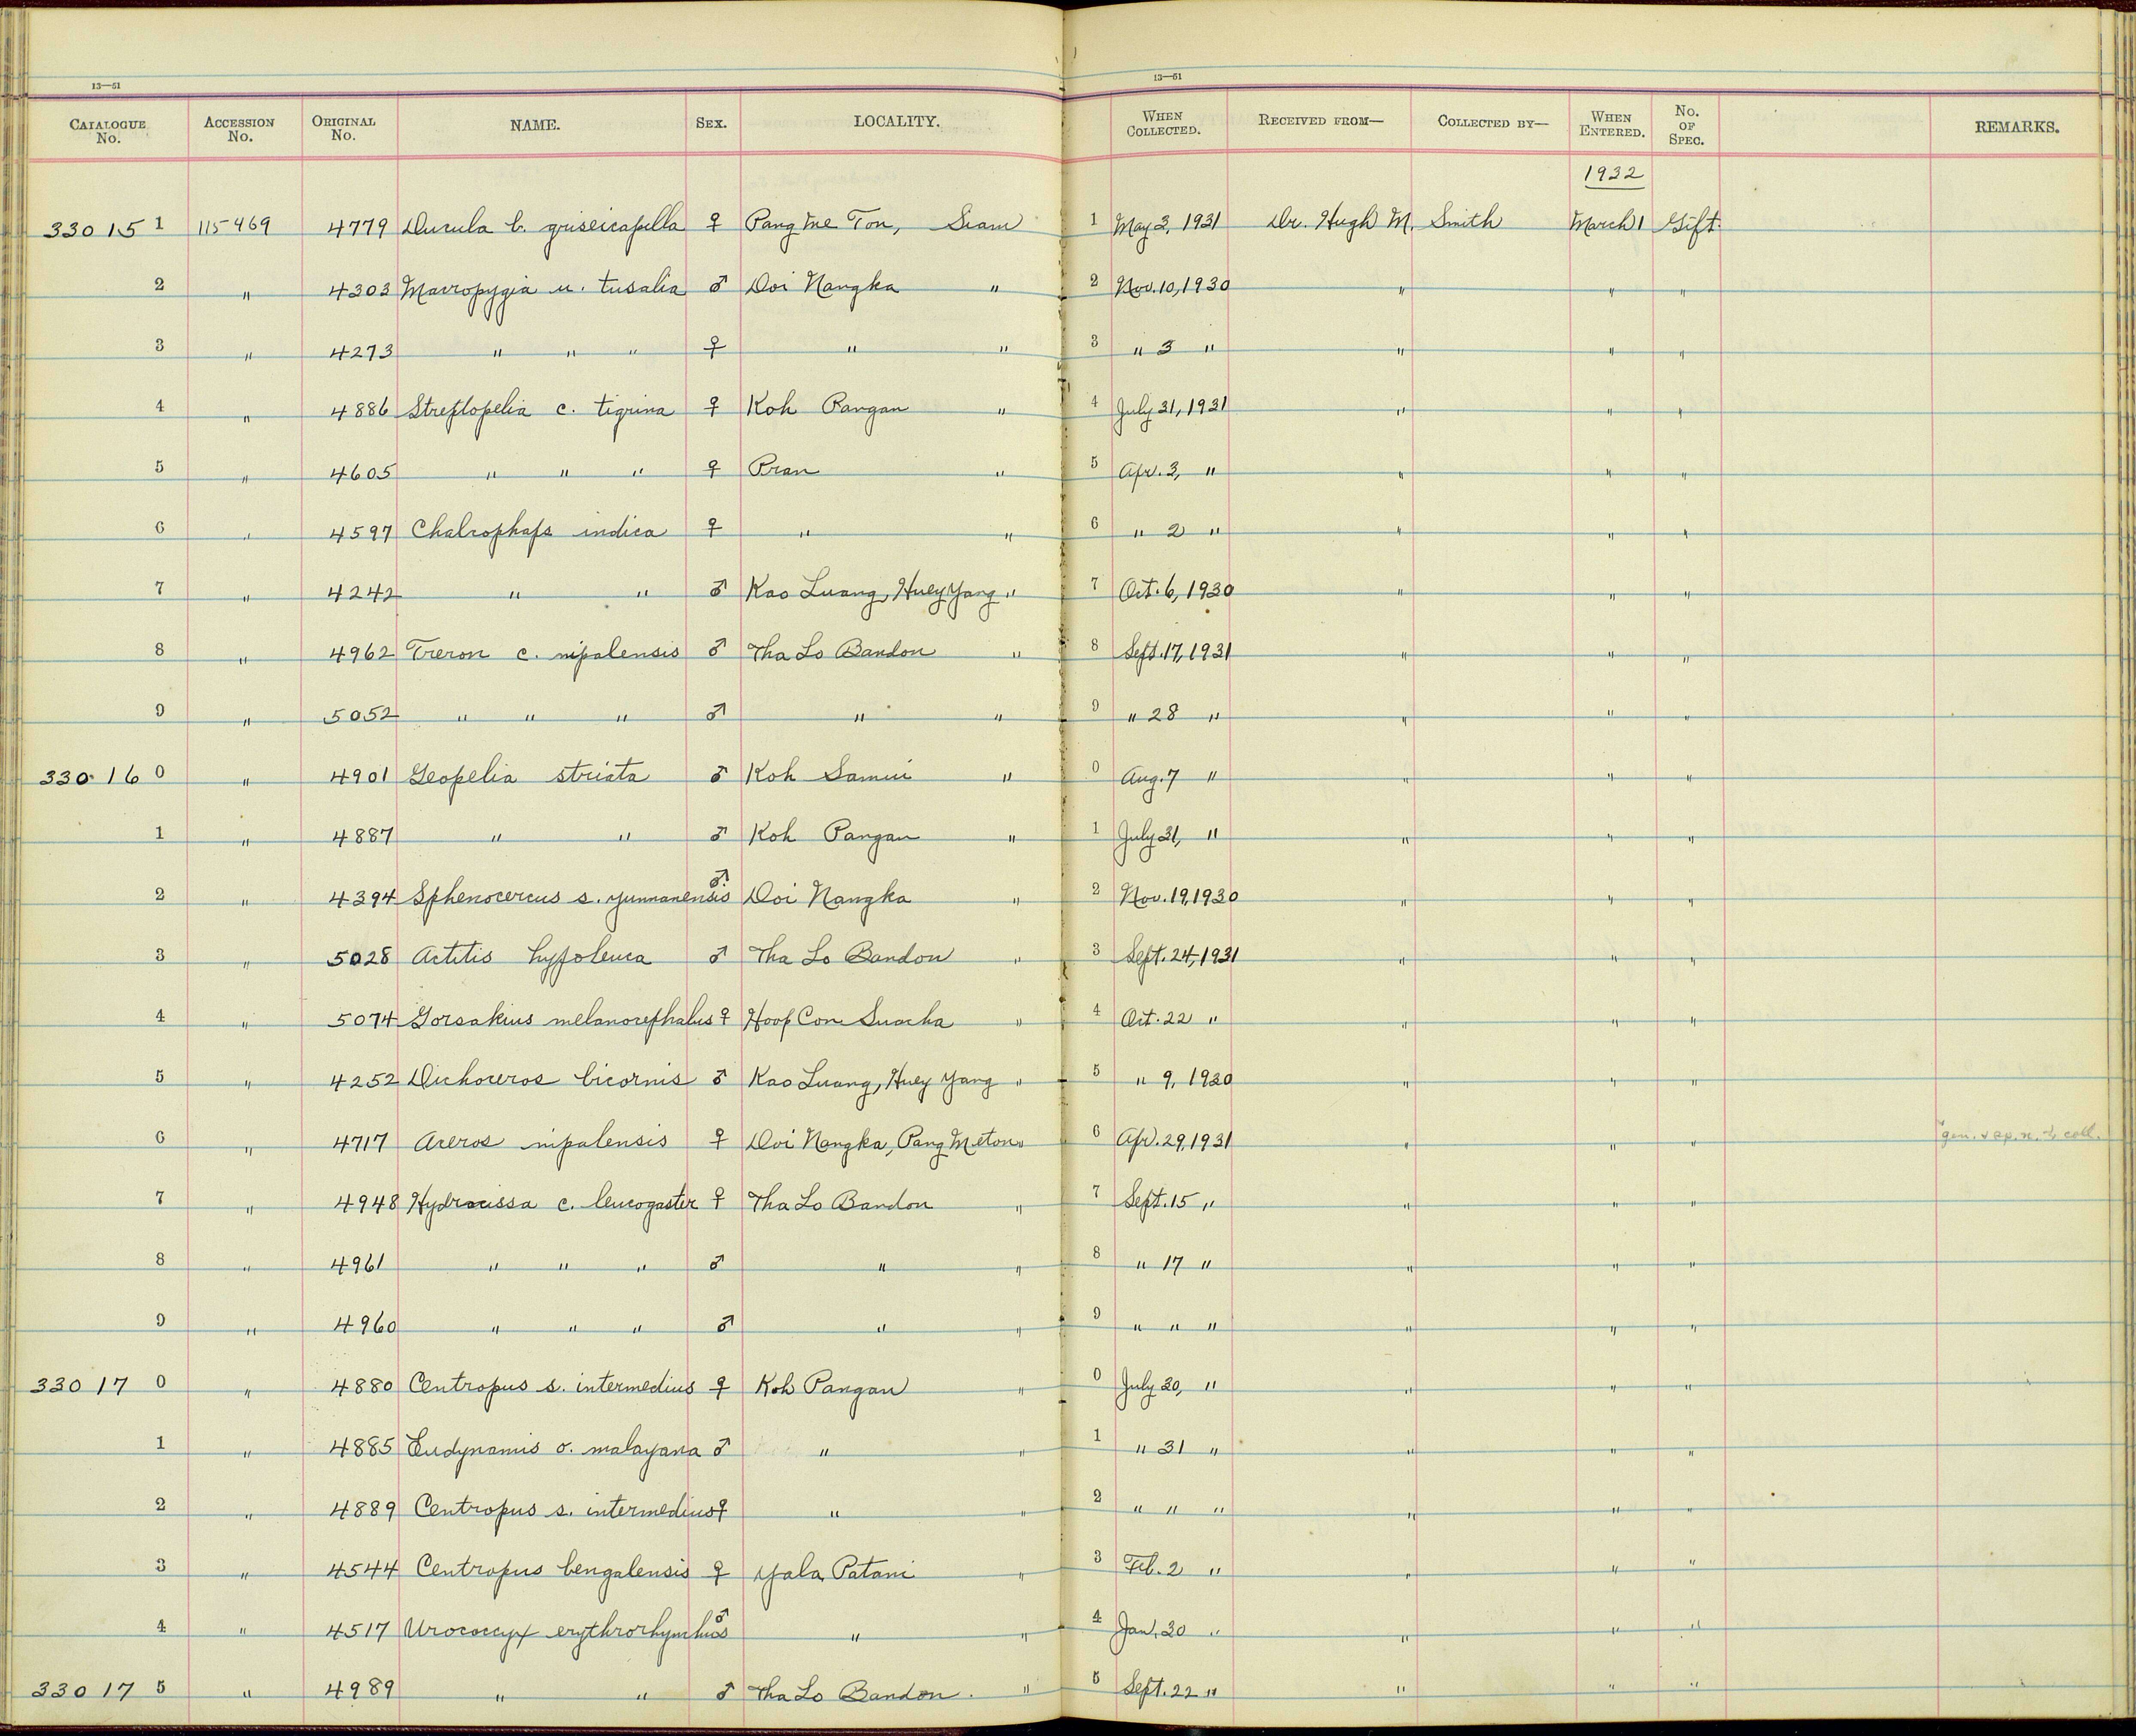 13—51
13—51
CATALOGUE No. ACCESSION No. ORIGINAL No. NAME. SEX. LOCALITY. WHEN COLLECTED. RECEIVED FROM— COLLECTED BY— WHEN ENTERED. No. OF SPEC. REMARKS.
1932
330151 115469 4779 Ducula b. griseicapilla ♀ Pang Me Ton, Siam 1 May 3, 1931 Dr. Hugh M. Smith March 1 Gift.
2 " 4303 Macropygia u. tusalia ♂ Doi Nangka " 2 Nov. 10, 1930 " " "
3 " 4273 " " " ♀ " " 3 " 3 " " " "
4 " 4886 Streptopelia c. tigrina ♀ Koh Pangan " 4 July 31, 1931 " " "
5 " 4605 " " " ♀ Pran " 5 Apr. 3, " " " "
6 " 4597 Chalcophaps indica ♀ " " 6 " 2 " " " "
7 " 4242 " " ♂ Kao Luang, Huey Yang " 7 Oct. 6, 1930 " " "
8 " 4962 Treron c. nipalensis ♂ Tha Lo Bandon " 8 Sept. 17, 1931 " " "
9 " 5052 " " " ♂ " " 9 " 28 " " " "
330160 " 4901 Geopelia striata ♂ Koh Samui " 0 Aug. 7 " " " "
1 " 4887 " " ♂ Koh Pangan " 1 July 31, " " " "
2 " 4394 Sphenocercus s. yunnanensis ♂ Doi Nangka " 2 Nov. 19, 1930 " " "
3 " 5028 Actitis hypoleuca ♂ Tha Lo Bandon " 3 Sept. 24, 1931 " " "
4 " 5074 Gorsakius melanocephalus ♀ Hoop Con Suacha " 4 Oct. 22 " " " "
5 " 4252 Dichoceros bicornis ♂ Kao Luang, Huey Yang " 5 " 9, 1930 " " "
6 " 4717 Aceros nipalensis ♀ Doi Nangka, Pang Meton " 6 Apr. 29, 1931 " " " gen. & sp. n. to coll.
7 " 4948 Hydrocissa c. leucogaster ♀ Tha Lo Bandon " 7 Sept. 15 " " " "
8 " 4961 " " " ♂ " " 8 " 17 " " " "
9 " 4960 " " " ♂ " " 9 " " " " " "
330170 " 4880 Centropus s. intermedius ♀ Koh Pangan " 0 July 30, " " " "
1 " 4885 Eudynamis o. malayana ♂ " " 1 " 31 " " " "
2 " 4889 Centropus s. intermedius ♀ " " 2 " " " " " "
3 " 4544 Centropus bengalensis ♀ Yala, Patani " 3 Feb. 2 " " " "
4 " 4517 Urococcyx erythrorhynchus ♂ " " 4 Jan. 30 " " " "
330175 " 4989 " " ♂ Tha Lo Bandon. " 5 Sept. 22 " " " "